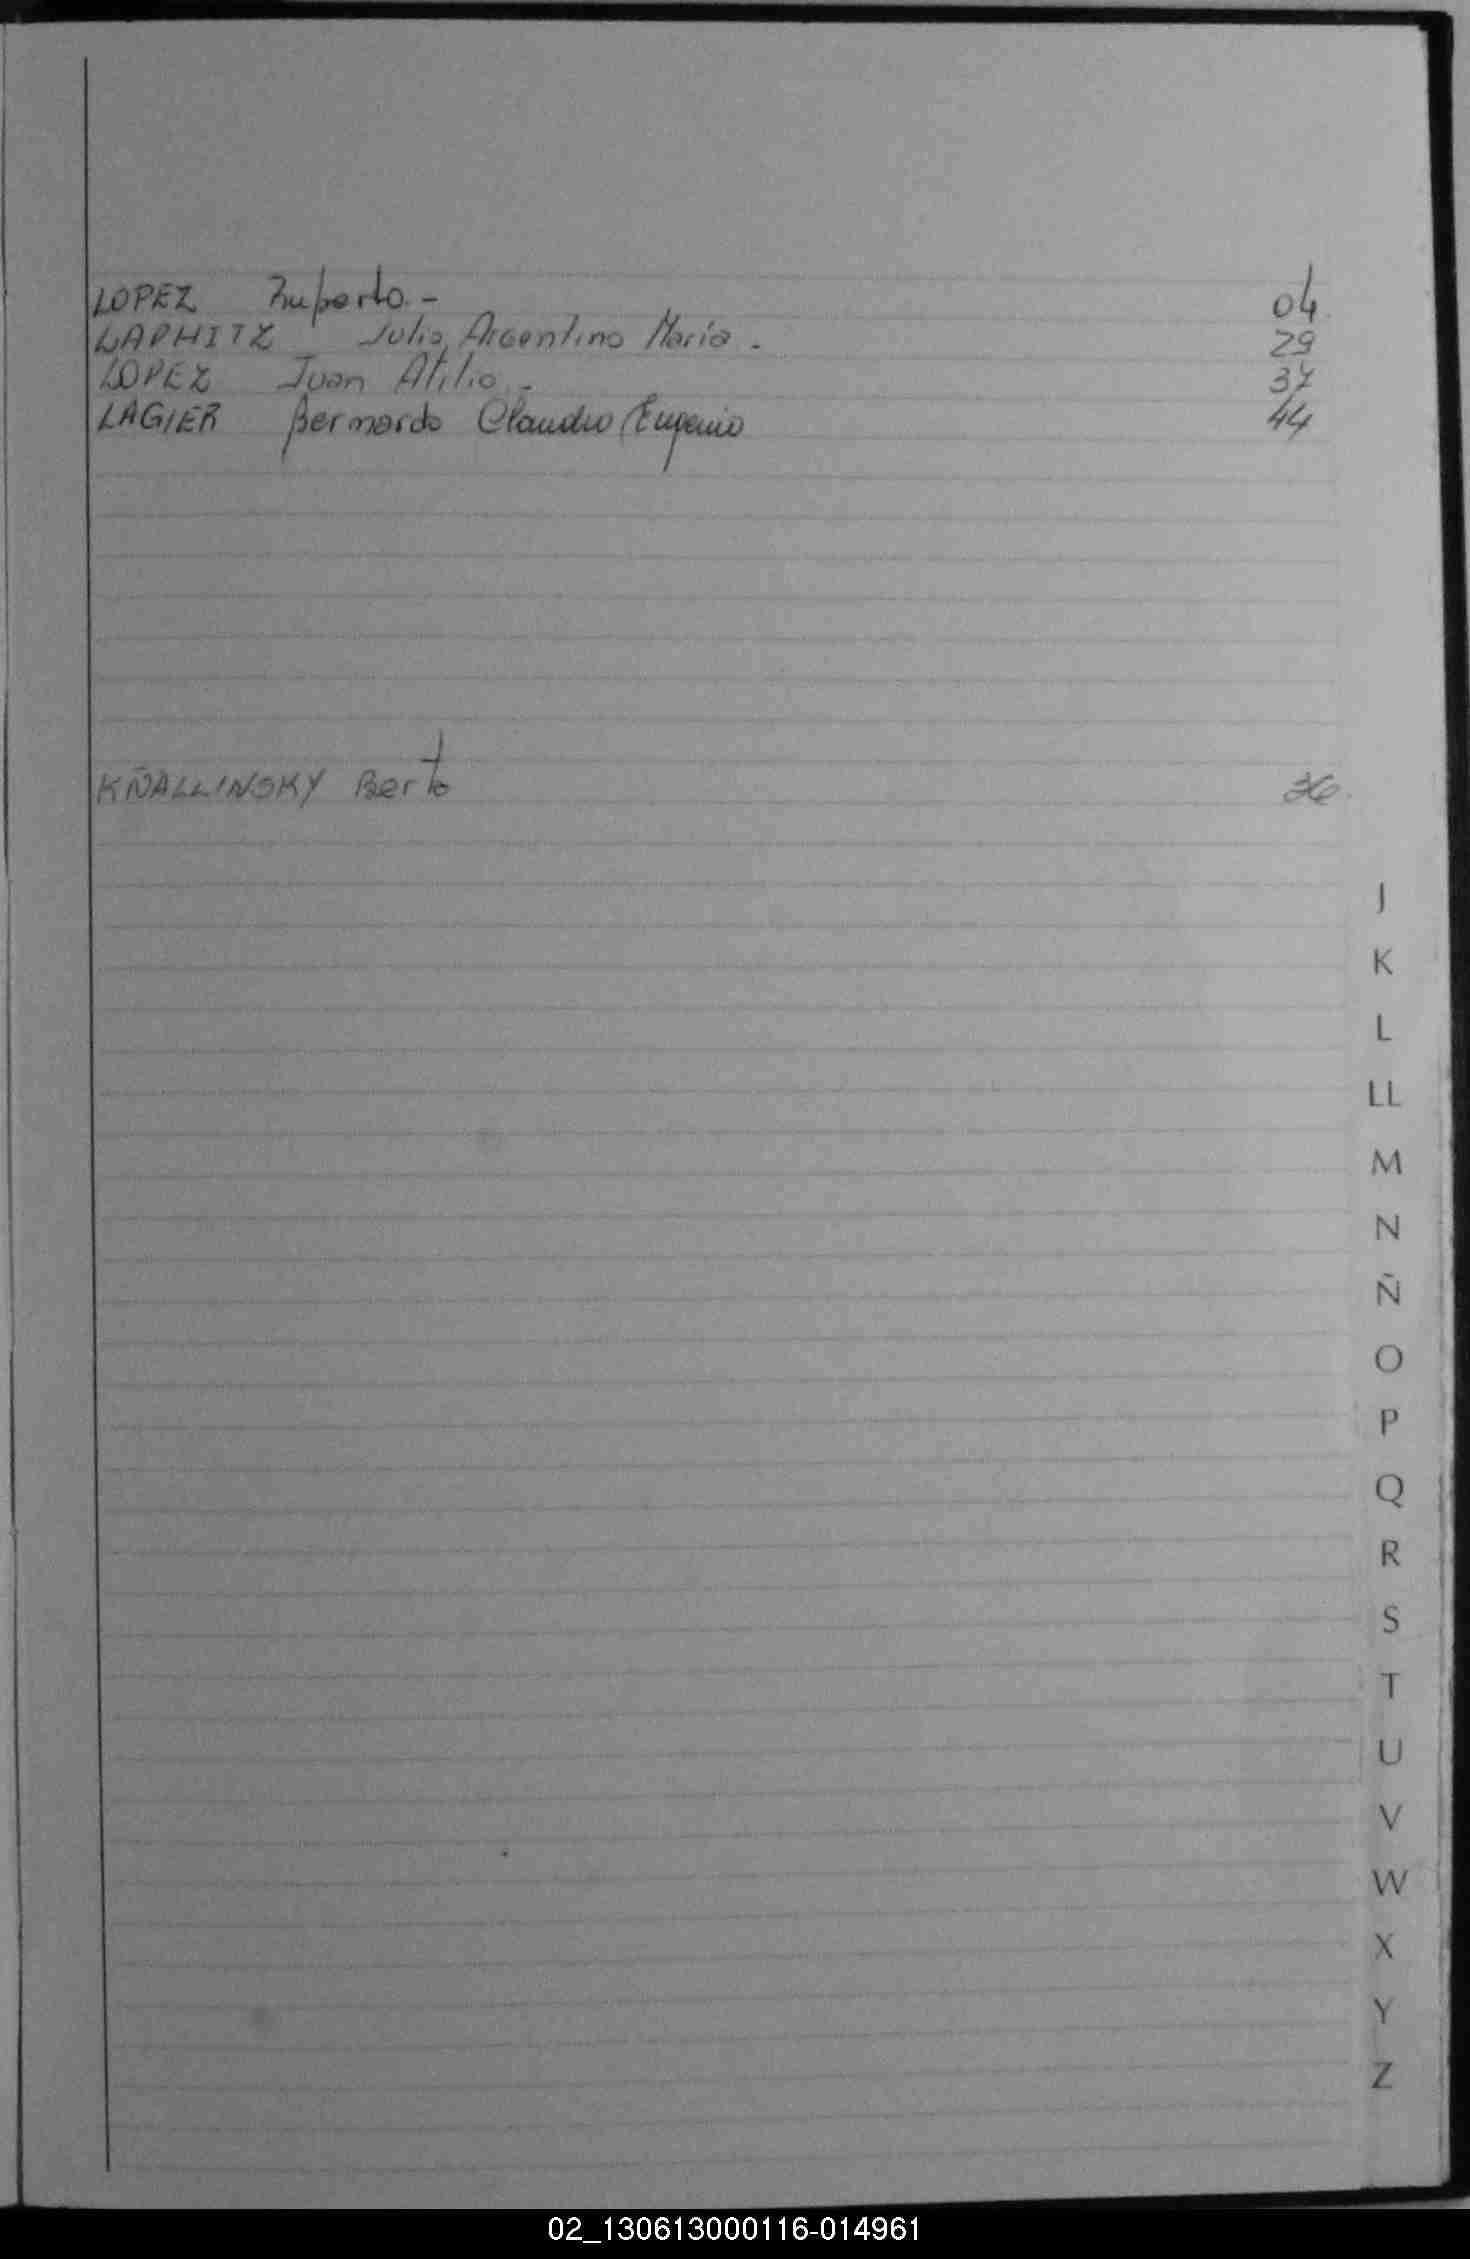 LOPEZ Ruperto.- 04.
LAPHITZ Julio Argentino María.- 29
LOPEZ Juan Atilio.- 37
LAGIER Bernardo Claudio Eugenio 44
KÑALLINSKY Berto 36.
J
K
L
LL
M
N
Ñ
O
P
Q
R
S
T
U
V
W
X
Y
Z
02_130613000116-014961